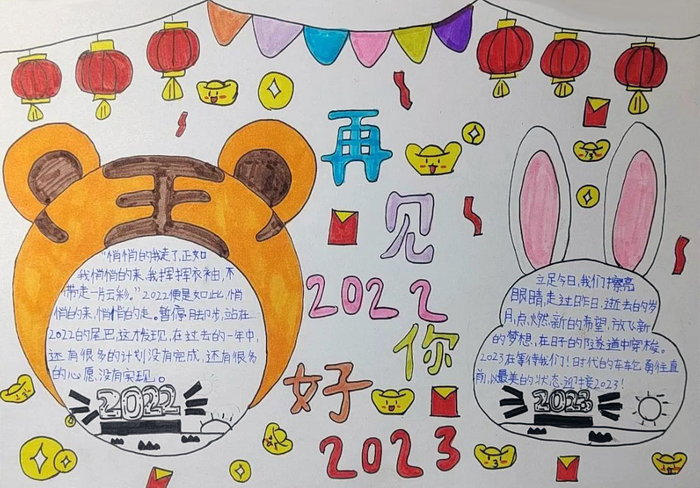 再
见
2022
你
好
2023
"悄悄的我走了,正如
我悄悄的来,我挥挥衣袖,不
带走一片云彩。"2022便是如此,悄
悄的来,悄悄的走。暂停脚步,站在
2022的尾巴,这才发现,在过去的一年中,
还有很多的计划没有完成,还有很多
的心愿没有实现。
2022
立足今日,我们擦亮
眼睛,走过昨日,逝去的岁
月,点燃新的希望,放飞新
的梦想,在时的隧道中穿梭。
2023在等待我们!时代的车轮勇往直
前,以最美的状态,迎接2023!
2023